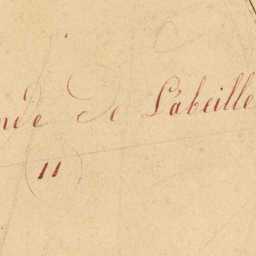 de L'abeille
(11)